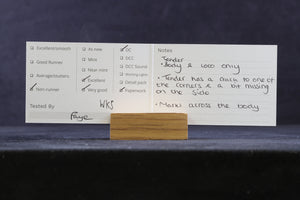 Excellent/smooth
As new
DC
Notes
Good Runner
Mint
DCC
Tender
DCC Sound
• Body & loco only
Near mint
Average/stutters
Working Lights
• Tender has a crack to one of
Excellent
Detail pack
the corners & a bit missing
Non-runner
Very good
Paperwork
on the side
Tested By
WKS
• Marks across the body
Faye